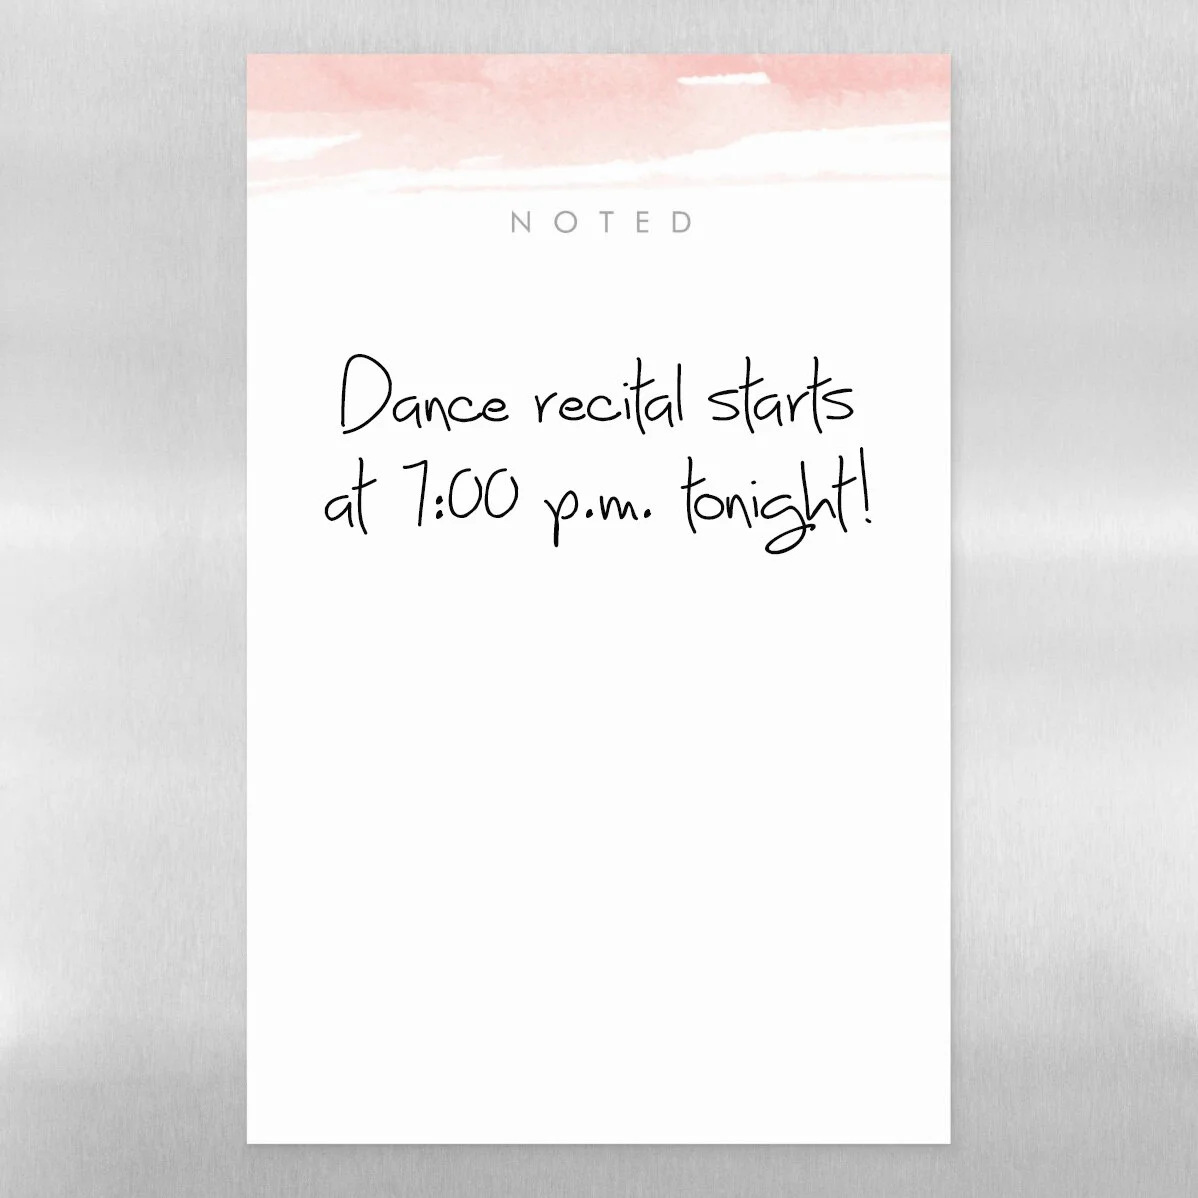 NOTED
Dance recital starts
at 7:00 p.m. tonight!